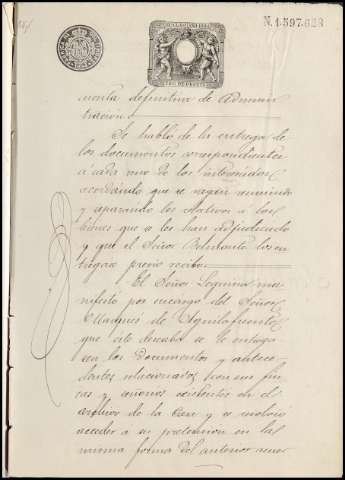 N. 1.597.623
cuenta definitiva de Adminis
tracion.
Se habló de la entrega de
los documentos correspondientes
á cada uno de los interesados
acordando que se vayan reuniendo
y aparando los relativos á los
bienes que se les han adjudicado
y que el Señor Belmonte los en
tregara previo recibo.
El Señor Leguina ma
nifestó por encargo del Señor
Marqués de Aguilafuente
que este deseaba se le entrega
sen los documentos y antece
dentes relacionados con sus fin
cas y señorios existentes en el
archivo de la Casa y se acordó
acceder á su pretension en la
misma forma del anterior acuer